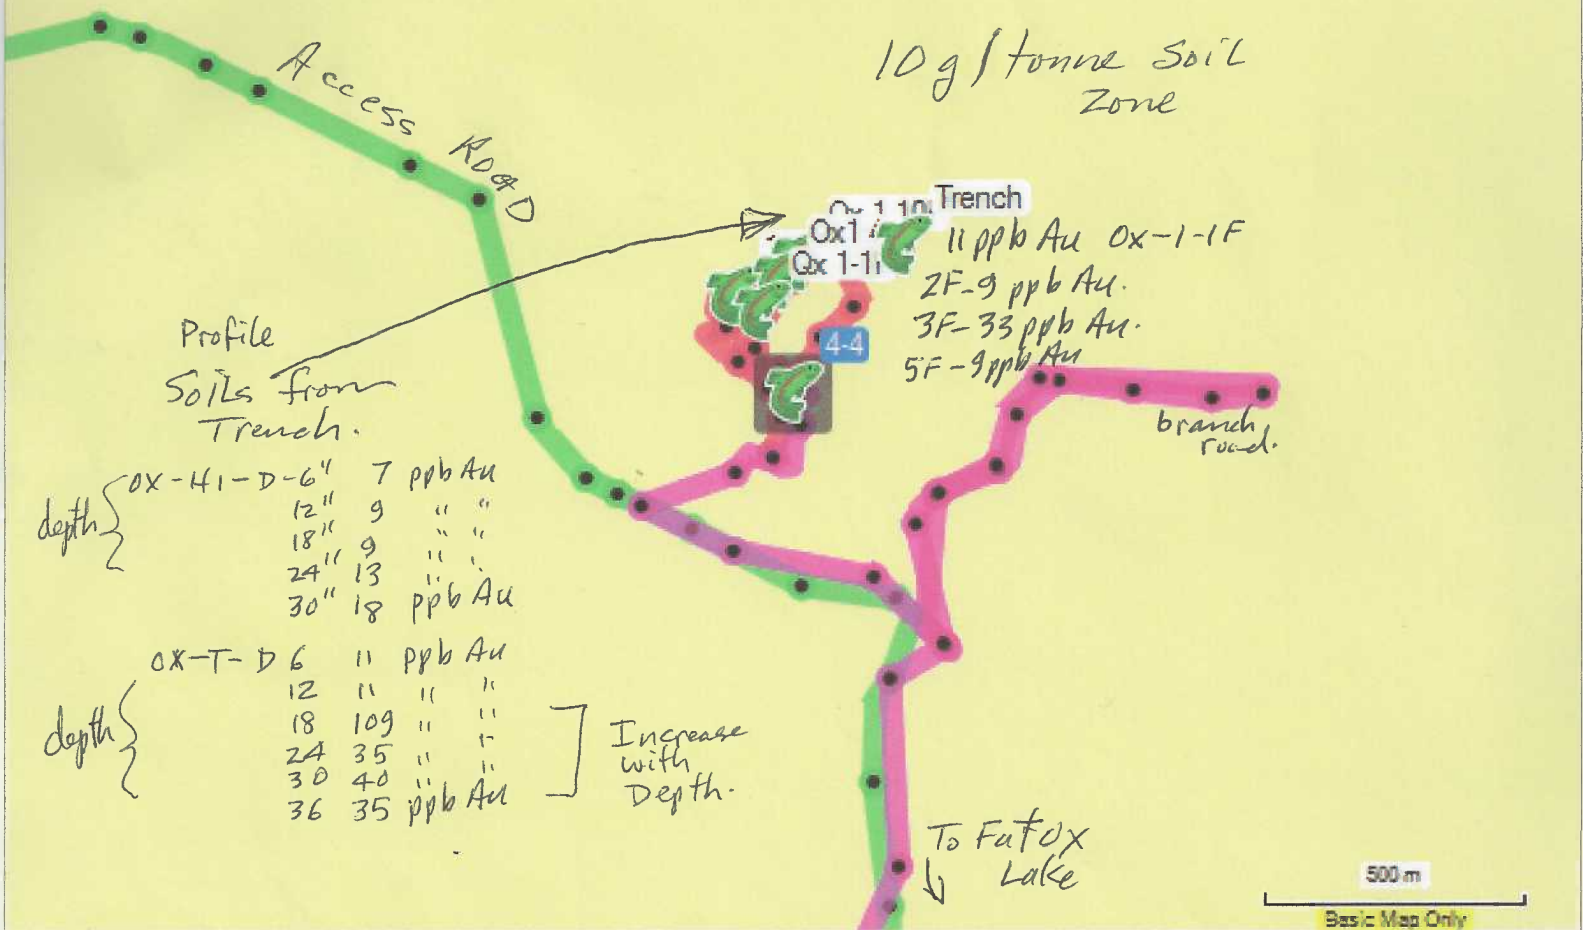 10 g/tonne Soil
Zone
Access Road
Trench
Ox1
Qx 1-1
11 ppb Au Ox-1-1F
2F-9 ppb Au.
3F-33 ppb Au.
5F-9 ppb Au
4-4
Profile
Soils from
Trench.
branch
road.
depth
OX-H1-D-6" 7 ppb Au
12" 9 " "
18" 9 " "
24" 13 " "
30" 18 ppb Au
depth
OX-T-D 6 11 ppb Au
12 11 " "
18 109 " "
24 35 " "
30 40 " "
36 35 ppb Au
Increase
with
Depth.
To Fat Ox
Lake
500 m
Basic Map Only